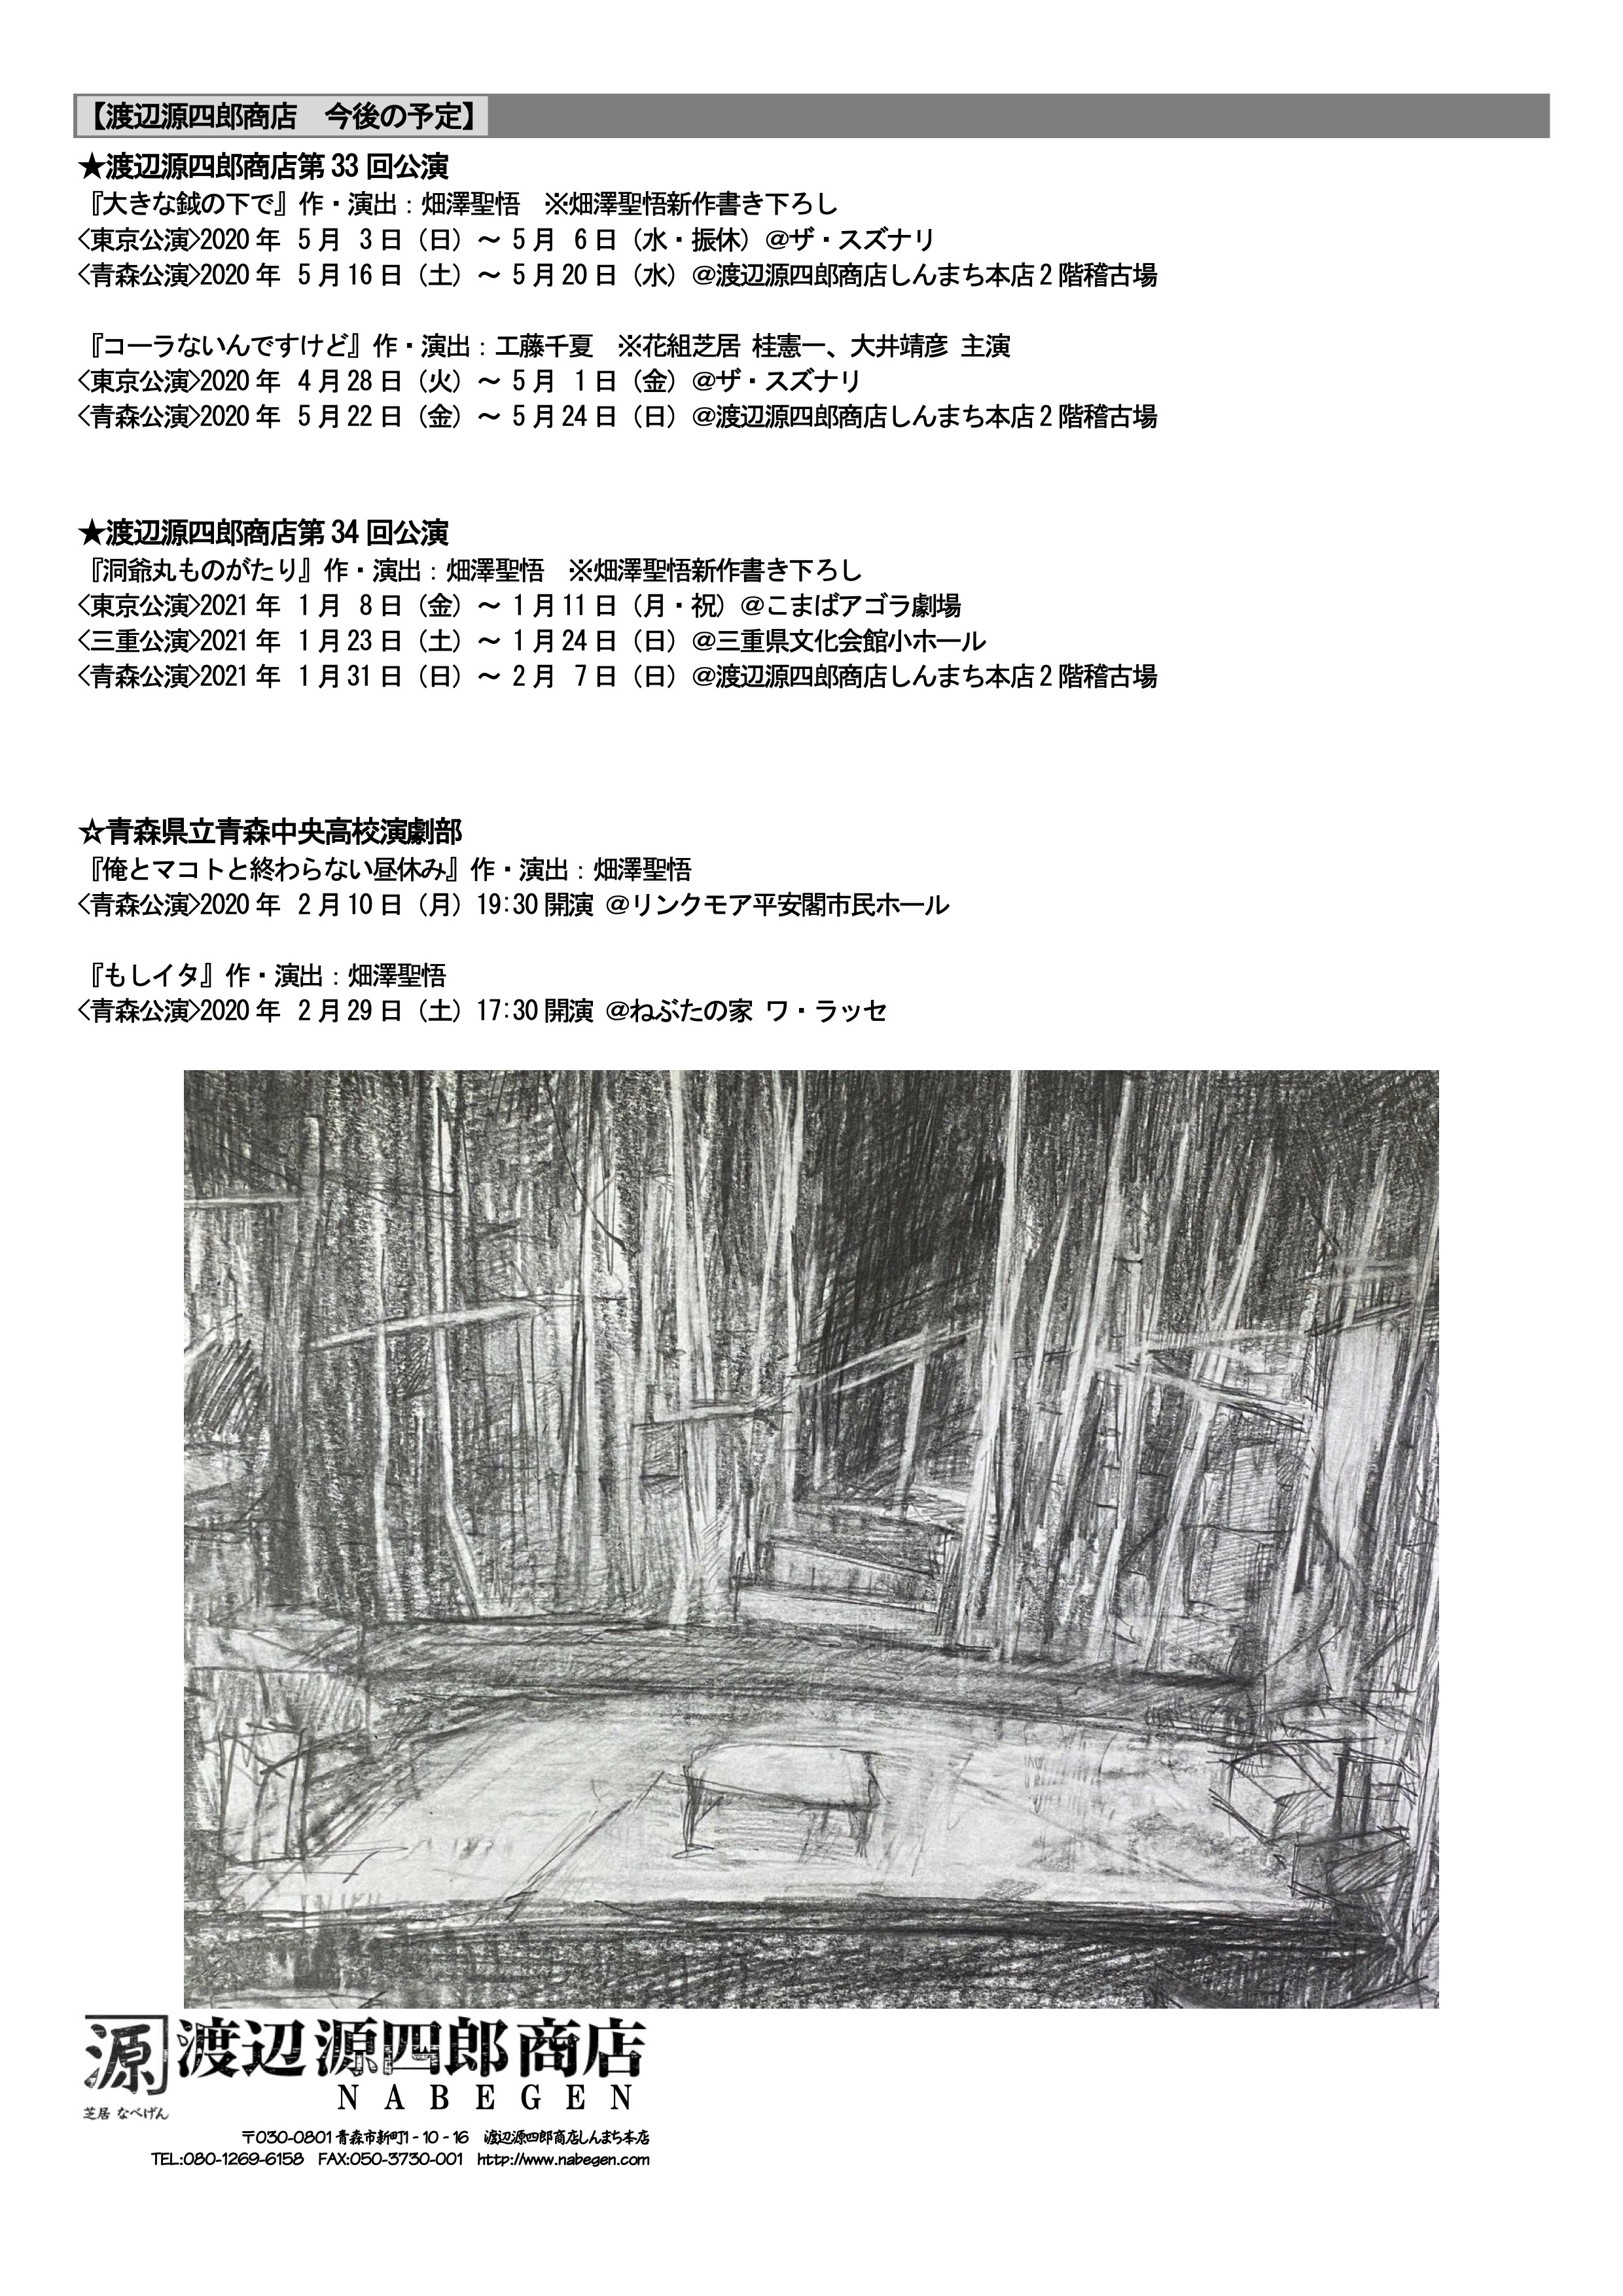 【渡辺源四郎商店　今後の予定】
★渡辺源四郎商店第33回公演
『大きな鉞の下で』作・演出：畑澤聖悟　※畑澤聖悟新作書き下ろし
<東京公演>2020年 5月 3日（日）～ 5月 6日（水・振休）@ザ・スズナリ
<青森公演>2020年 5月16日（土）～ 5月20日（水）@渡辺源四郎商店しんまち本店2階稽古場
『コーラないんですけど』作・演出：工藤千夏　※花組芝居 桂憲一、大井靖彦 主演
<東京公演>2020年 4月28日（火）～ 5月 1日（金）@ザ・スズナリ
<青森公演>2020年 5月22日（金）～ 5月24日（日）@渡辺源四郎商店しんまち本店2階稽古場
★渡辺源四郎商店第34回公演
『洞爺丸ものがたり』作・演出：畑澤聖悟　※畑澤聖悟新作書き下ろし
<東京公演>2021年 1月 8日（金）～ 1月11日（月・祝）@こまばアゴラ劇場
<三重公演>2021年 1月23日（土）～ 1月24日（日）@三重県文化会館小ホール
<青森公演>2021年 1月31日（日）～ 2月 7日（日）@渡辺源四郎商店しんまち本店2階稽古場
☆青森県立青森中央高校演劇部
『俺とマコトと終わらない昼休み』作・演出：畑澤聖悟
<青森公演>2020年 2月10日（月）19:30開演 @リンクモア平安閣市民ホール
『もしイタ』作・演出：畑澤聖悟
<青森公演>2020年 2月29日（土）17:30開演 @ねぶたの家 ワ・ラッセ
源 渡辺源四郎商店
NABEGEN
芝居 なべげん
〒030-0801青森市新町1-10-16　渡辺源四郎商店しんまち本店
TEL:080-1269-6158　FAX:050-3730-001　http://www.nabegen.com